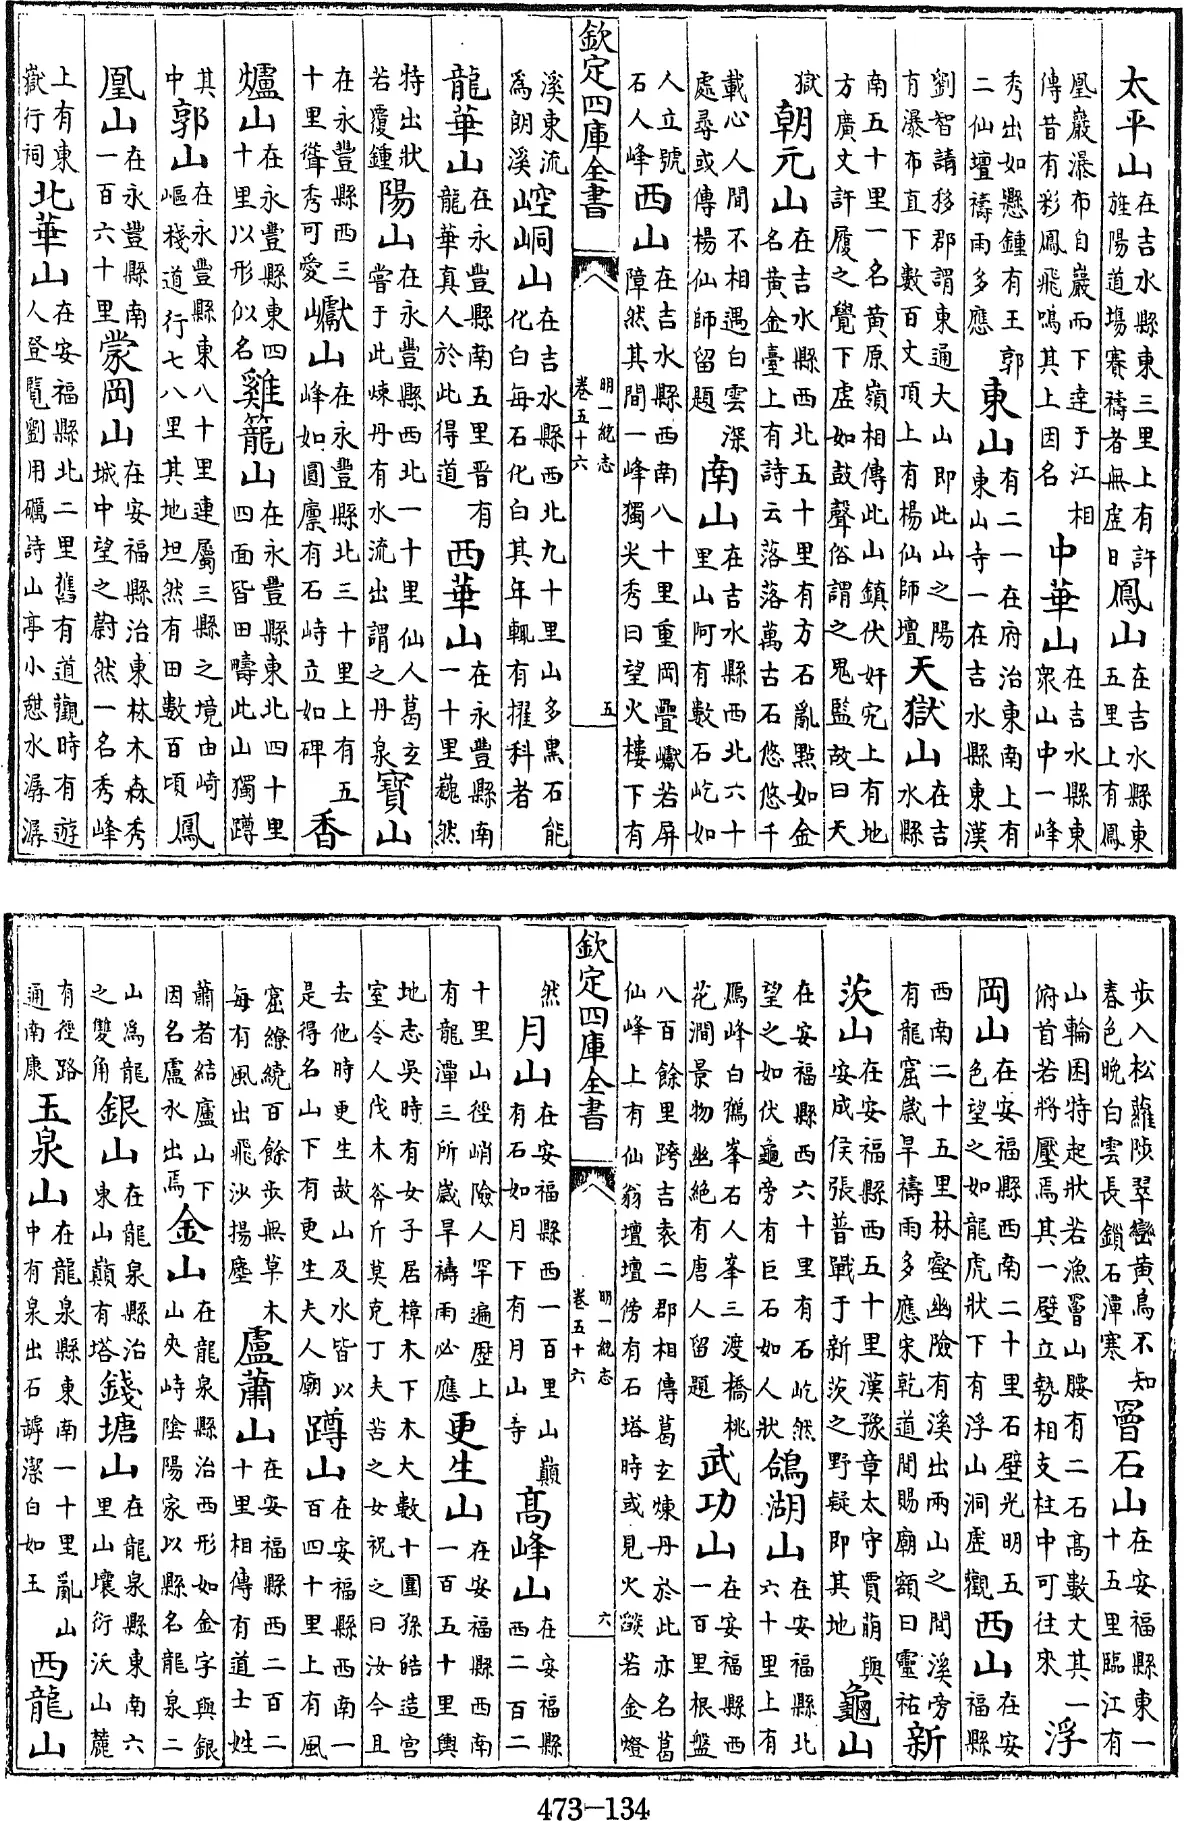 太平山在吉水縣東三里上有許旌陽道場賽禱者無虛日鳳山在吉水縣東五里上有鳳
凰巖瀑布自巖而下逹于江相傳昔有彩鳳飛鳴其上因名中華山在吉水縣東衆山中一峰
秀出如懸鍾有王郭二仙壇禱雨多應東山有二一在府治東南上有東山寺一在吉水縣東漢
劉智請移郡謂東通大山即此山之陽有瀑布直下數百丈頂上有楊仙師壇天獄山在吉水縣
南五十里一名黄原嶺相傳此山鎮伏奸宄上有地方廣丈許履之覺下虛如鼓聲俗謂之鬼監故曰天
獄朝元山在吉水縣西北五十里有方石亂點如金名黄金臺上有詩云落落萬古石悠悠千
載心人間不相遇白雲深處尋或傳楊仙師留題南山在吉水縣西北六十里山阿有數石屹如
人立號石人峰西山在吉水縣西南八十里重岡疊巘若屏障然其間一峰獨尖秀曰望火樓下有
欽定四庫全書 明一統志 卷五十六 五
溪東流為朗溪崆峒山在吉水縣西北九十里山多黒石能化白每石化白其年輒有擢科者
龍華山在永豐縣南五里晋有龍華真人於此得道西華山在永豐縣南一十里巍然
特出狀若覆鍾陽山在永豐縣西北一十里仙人葛玄嘗于此煉丹有水流出謂之丹泉寶山
在永豐縣西三十里聳秀可愛巘山在永豐縣北三十里上有五峰如圓廪有石峙立如碑香
爐山在永豐縣東四十里以形似名雞籠山在永豐縣東北四十里四面皆田疇此山獨蹲
其中郭山在永豐縣東八十里連屬三縣之境由崎嶇棧道行七八里其地坦然有田數百頃鳳
凰山在永豐縣南一百六十里蒙岡山在安福縣治東林木森秀城中望之蔚然一名秀峰
上有東嶽行祠北華山在安福縣北二里舊有道觀時有遊人登覽劉用礪詩山亭小憩水潺潺
步入松蘿陟翠巒黄鳥不知春色晚白雲長鎖石潭寒罾石山在安福縣東一十五里臨江有
山輪囷特起狀若漁罾山腰有二石高數丈其一俯首若將壓焉其一壁立勢相支柱中可往來浮
岡山在安福縣西南二十里石壁光明五色望之如龍虎狀下有浮山洞虛觀西山在安福縣
西南二十五里林壑幽險有溪出兩山之間溪旁有龍窟歲旱禱雨多應宋乾道間賜廟額曰靈祐新
茨山在安福縣西五十里漢豫章太守賈萌與安成侯張普戰于新茨之野疑即其地龜山
在安福縣西六十里有石屹然望之如伏龜旁有巨石如人狀鴿湖山在安福縣北六十里上有
鴈峰白鶴峯石人峯三渡橋桃花澗景物幽絶有唐人留題武功山在安福縣西一百里根盤
八百餘里跨吉袁二郡相傳葛玄煉丹於此亦名葛仙峰上有仙翁壇壇傍有石塔時或見火燄若金燈
欽定四庫全書 明一統志 卷五十六 六
然月山在安福縣西一百里山巔有石如月下有月山寺高峰山在安福縣西二百二
十里山徑峭險人罕遍歴上有龍潭三所歲旱禱雨必應更生山在安福縣西南一百五十里輿
地志吳時有女子居樟木下木大數十圍孫皓造宫室令人伐木斧斤莫克丁夫苦之女祝之曰汝今且
去他時更生故山及水皆以是得名山下有更生夫人廟蹲山在安福縣西南一百四十里上有風
窟繚繞百餘步無草木每有風出飛沙揚塵盧蕭山在安福縣西二百二十里相傳有道士姓
蕭者結廬山下因名盧水出焉金山在龍泉縣治西形如金字與銀山夾峙陰陽家以縣名龍泉二
山為龍之雙角銀山在龍泉縣治東山巔有塔錢塘山在龍泉縣東南六里山壤衍沃山麓
有徑路通南康玉泉山在龍泉縣東南一十里亂山中有泉出石罅潔白如玉西龍山
473-134